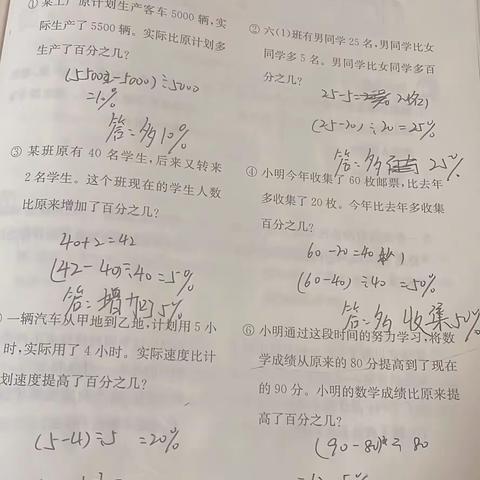 ① 某工厂原计划生产客车 5000 辆,实
际生产了 5500 辆。实际比原计划多
生产了百分之几?
(5500-5000)÷5000
=10%
答:多10%
② 六(1)班有男同学 25 名,男同学比女
同学多 5 名。男同学比女同学多百
分之几?
25-5=20(名)
(25-20)÷20=25%
答:多25%
③ 某班原有 40 名学生,后来又转来
2 名学生。这个班现在的学生人数
比原来增加了百分之几?
40+2=42
(42-40)÷40=5%
答:增加5%
④ 小明今年收集了 60 枚邮票,比去年
多收集了 20 枚。今年比去年多收集
百分之几?
60-20=40
(60-40)÷40=50%
答:多收集50%
一辆汽车从甲地到乙地,计划用 5 小
时,实际用了 4 小时。实际速度比计
划速度提高了百分之几?
(5-4)÷5 =20%
⑥ 小明通过这段时间的努力学习,将数
学成绩从原来的 80 分提高到了现在
的 90 分。小明的数学成绩比原来提
高了百分之几?
(90-80)÷80